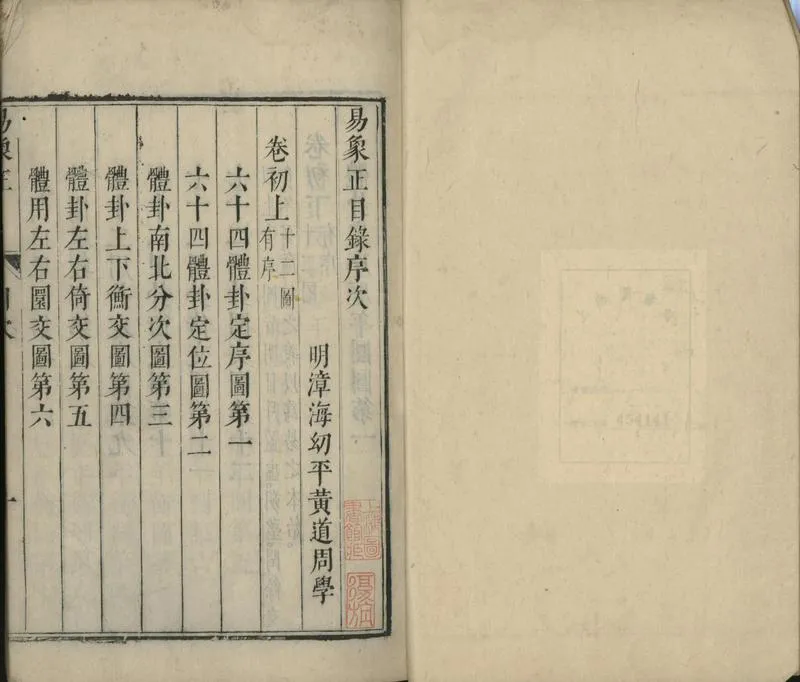 易象正目錄序次
明漳海幼平黃道周學
卷初上十二圖有序
六十四體卦定序圖第一
六十四體卦定位圖第二
體卦南北分次圖第三
體卦上下衡交圖第四
體卦左右倚交圖第五
體用左右圜交圖第六
易象正
目次
一